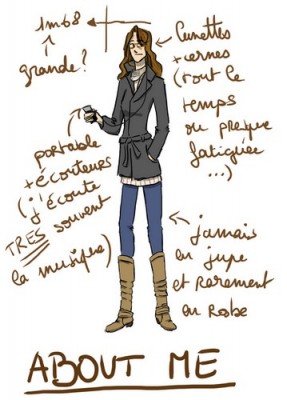 1m68
grande?
Lunettes
+ cernes
(tout le
temps
ou presque
fatiguée
...)
portable
+ écouteurs
(j'écoute
TRES souvent
la musique)
jamais
en jupe
et rarement
en Robe
ABOUT ME